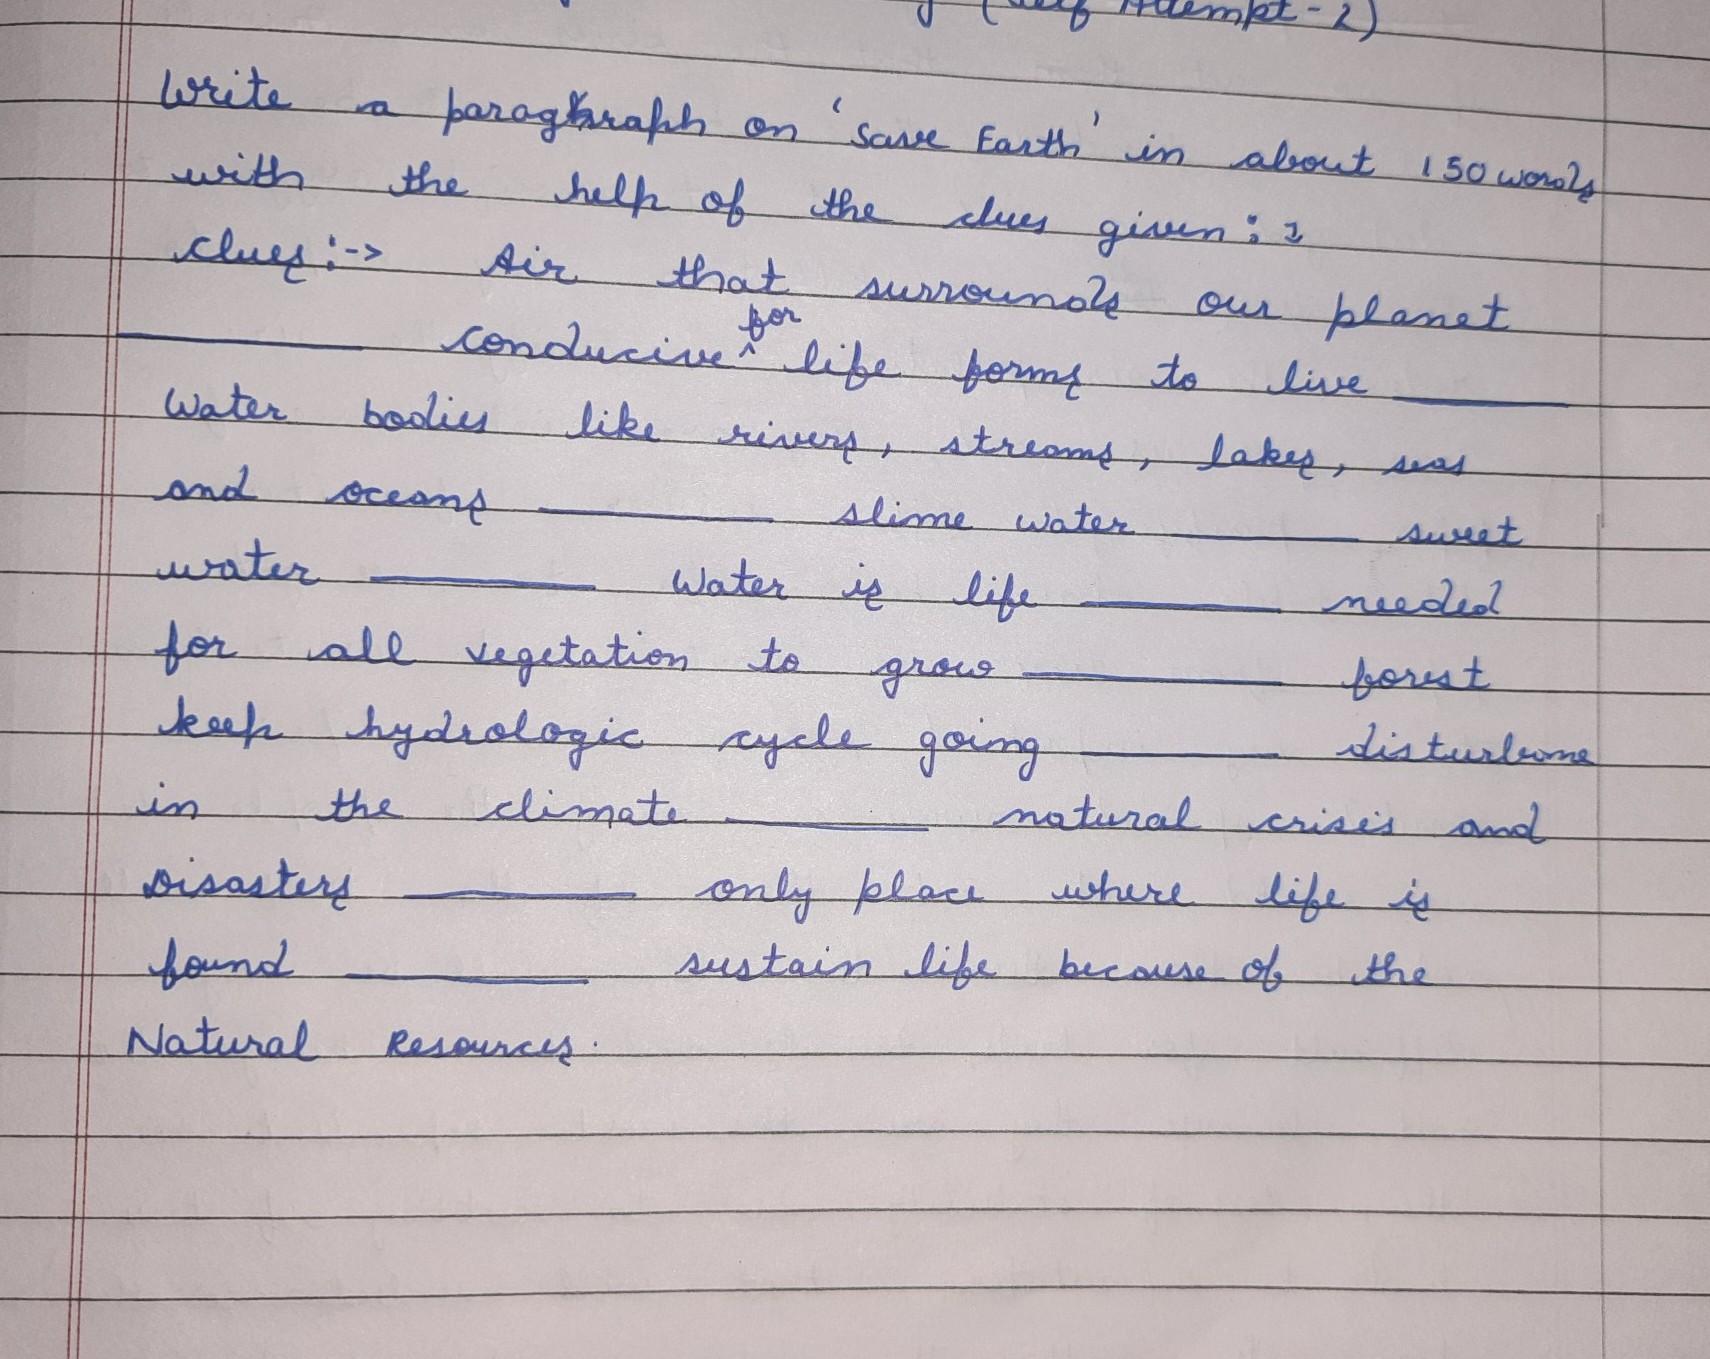 (Self Attempt-2)
Write a paragraph on 'Save Earth' in about 150 words
with the help of the clues given:
clues:-> Air that surrounds our planet
______ conducive for life forms to live ______
Water bodies like rivers, streams, lakes, seas
and oceans ______ slime water ______ sweet
water ______ Water is life ______ needed
for all vegetation to grow ______ forest
keep hydrologic cycle going ______ disturbance
in the climate ______ natural crisis and
Disasters ______ only place where life is
found ______ sustain life because of the
Natural Resources.